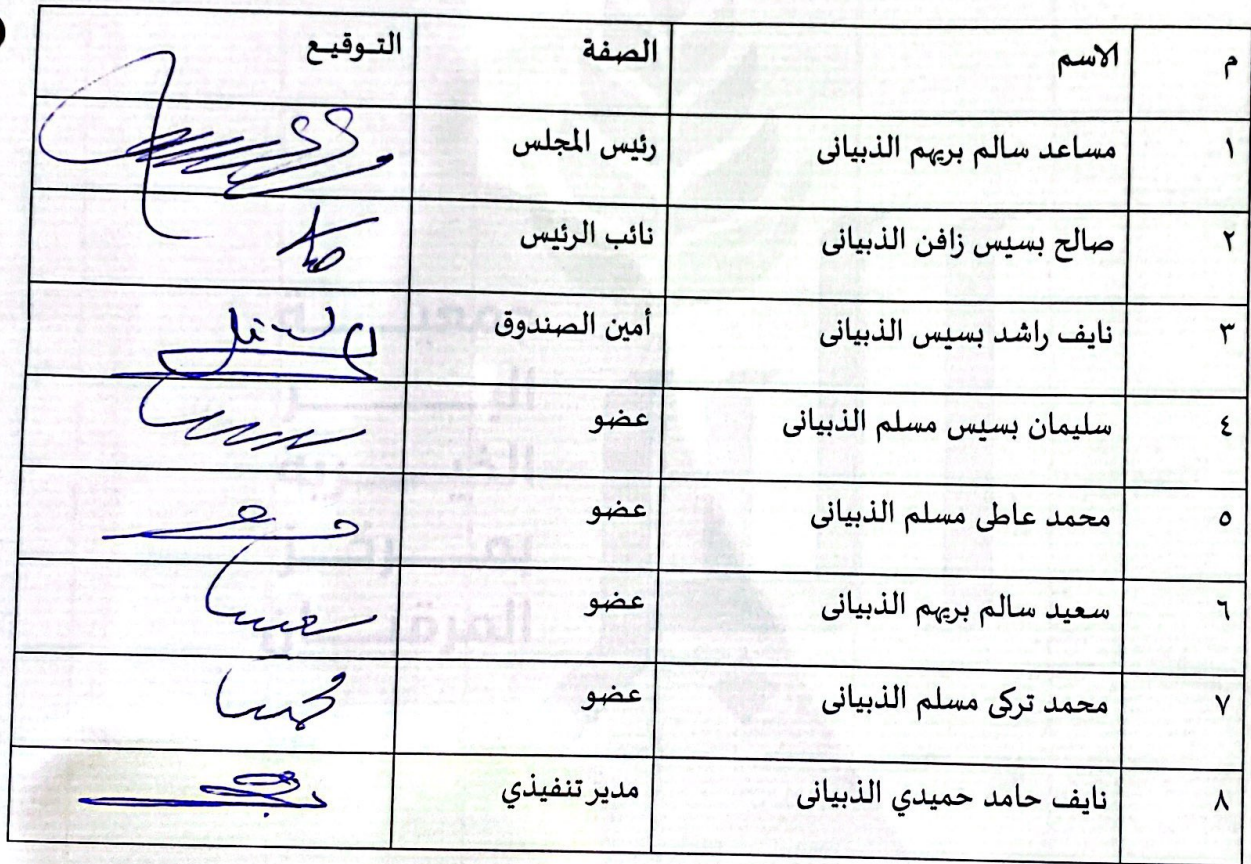 م الاسم الصفة التـوقيـع
١ مساعد سالم بريهم الذبيانى رئيس المجلس
٢ صالح بسيس زافن الذبيانى نائب الرئيس
٣ نايف راشد بسيس الذبيانى أمين الصندوق
٤ سليمان بسيس مسلم الذبيانى عضو
٥ محمد عاطى مسلم الذبيانى عضو
٦ سعيد سالم بريهم الذبيانى عضو
٧ محمد تركى مسلم الذبيانى عضو
٨ نايف حامد حميدي الذبيانى مدير تنفيذي